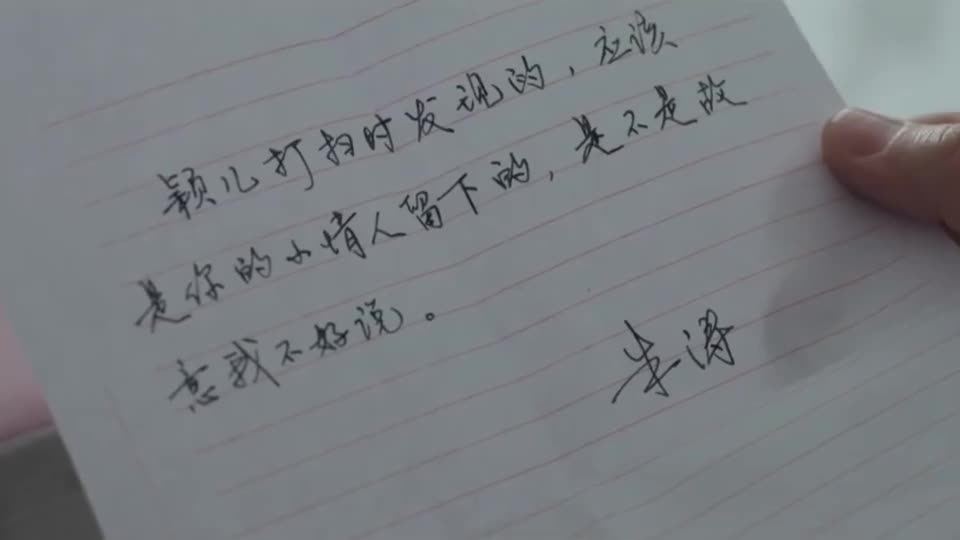 颖儿打扫时发现的，应该
是你的小情人留下的，是不是故
意我不好说。
朱涛